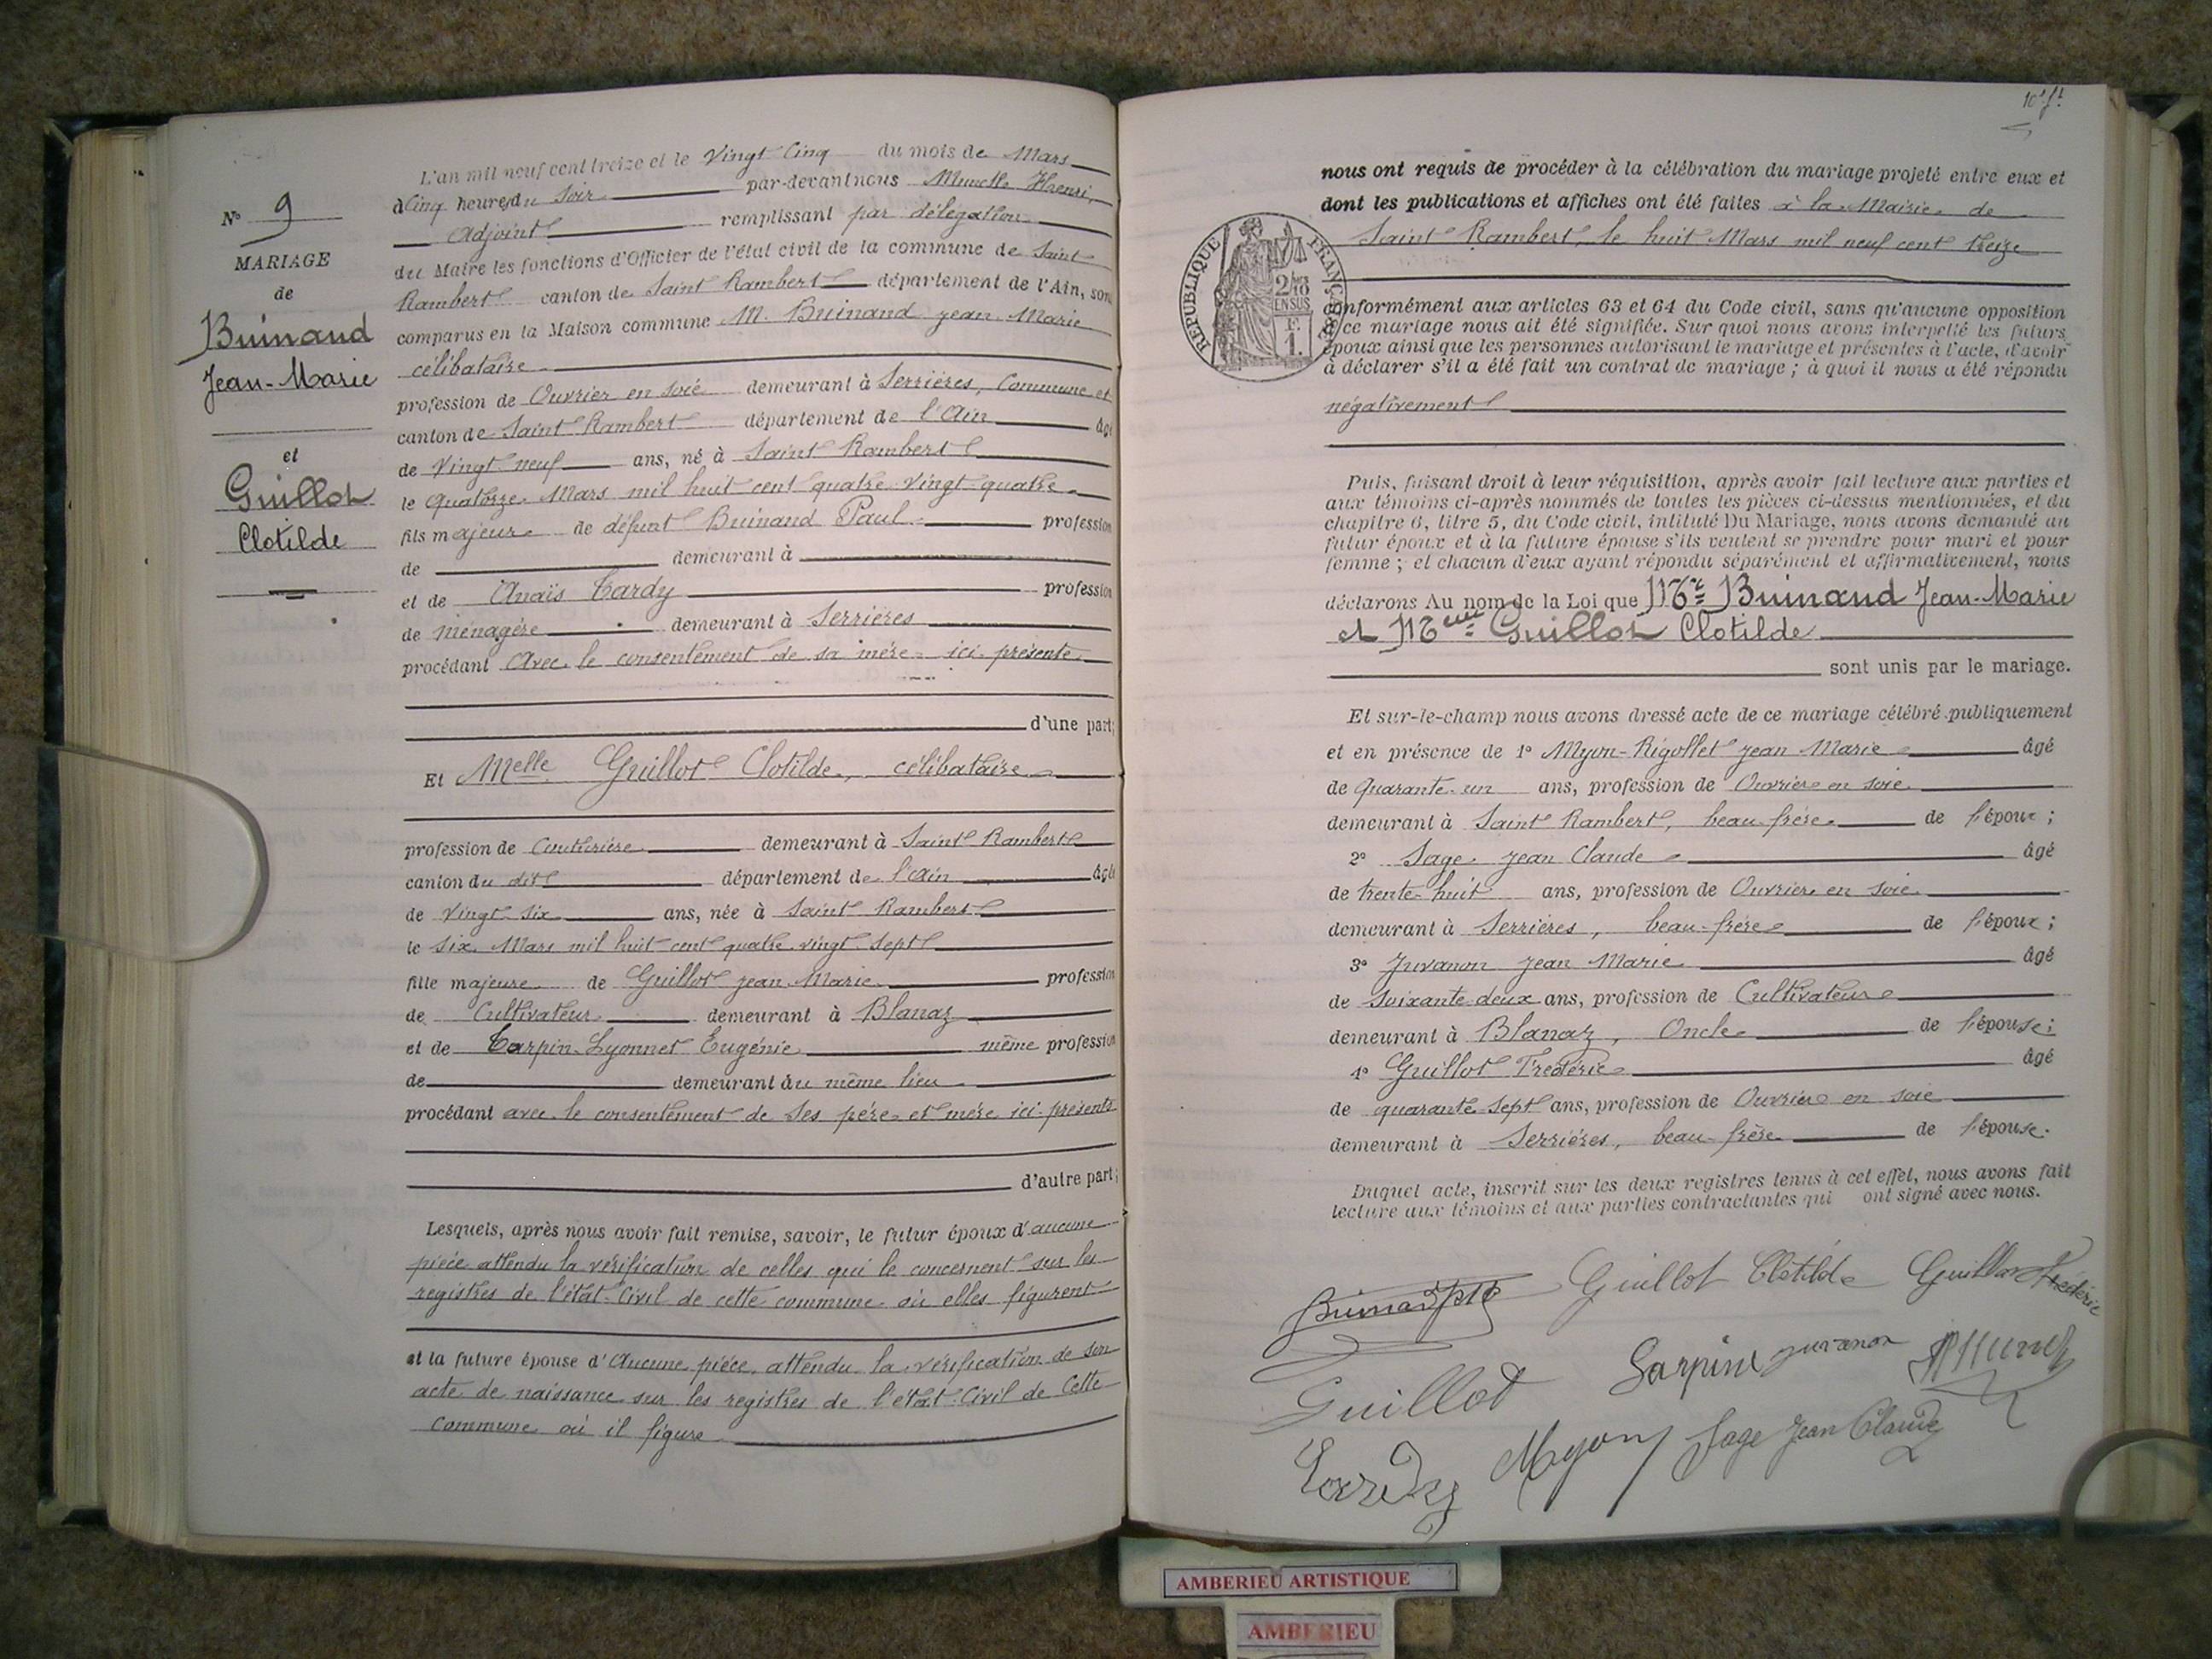 N° 9
MARIAGE
de
Buinand
Jean-Marie
et
Guillot
Clotilde
L'an mil neuf cent treize et le Vingt Cinq du mois de Mars
à Cinq heures du Soir par-devant nous Henri,
Adjoint remplissant par délégation
du Maire les fonctions d'Officier de l'état civil de la commune de Saint
Rambert canton de Saint Rambert département de l'Ain, sont
comparus en la Maison commune M. Buinand Jean Marie
célibataire
profession de Ouvrier en soie demeurant à Serrières, Commune et
canton de Saint Rambert département de l'Ain âgé
de Vingt neuf ans, né à Saint Rambert
le Quatorze Mars mil huit cent quatre vingt quatre
fils majeur de défunt Buinand Paul profession
de demeurant à
et de Anaïs Tardy profession
de ménagère demeurant à Serrières
procédant Avec le consentement de sa mère ici présente
d'une part;
Et Melle Guillot Clotilde, célibataire
profession de Couturière demeurant à Saint Rambert
canton du dit département de l'Ain âgée
de Vingt six ans, née à Saint Rambert
le six Mars mil huit cent quatre vingt sept
fille majeure de Guillot Jean Marie profession
de Cultivateur demeurant à Blanaz
et de Tarpin-Lyonnet Eugénie même profession
de demeurant au même lieu
procédant avec le consentement de ses père et mère ici présents
d'autre part;
Lesquels, après nous avoir fait remise, savoir, le futur époux d'aucune
pièce attendu la vérification de celles qui le concernent sur les
registres de l'état Civil de cette commune où elles figurent
et la future épouse d'Aucune pièce, attendu la vérification de son
acte de naissance sur les registres de l'état Civil de Cette
Commune où il figure
nous ont requis de procéder à la célébration du mariage projeté entre eux et
dont les publications et affiches ont été faites à la Mairie de
Saint Rambert, le huit Mars mil neuf cent treize
RÉPUBLIQUE FRANÇAISE
2/10
EN SUS
F.
1.
conformément aux articles 63 et 64 du Code civil, sans qu'aucune opposition
à ce mariage nous ait été signifiée. Sur quoi nous avons interpellé les futurs
époux ainsi que les personnes autorisant le mariage et présentes à l'acte, d'avoir
à déclarer s'il a été fait un contrat de mariage ; à quoi il nous a été répondu
négativement
Puis, faisant droit à leur réquisition, après avoir fait lecture aux parties et
aux témoins ci-après nommés de toutes les pièces ci-dessus mentionnées, et du
chapitre 6, titre 5, du Code civil, intitulé Du Mariage, nous avons demandé au
futur époux et à la future épouse s'ils veulent se prendre pour mari et pour
femme ; et chacun d'eux ayant répondu séparément et affirmativement, nous
déclarons Au nom de la Loi que Mr Buinand Jean-Marie
et Melle Guillot Clotilde
sont unis par le mariage.
Et sur-le-champ nous avons dressé acte de ce mariage célébré publiquement
et en présence de 1° Myon-Rigollet Jean Marie âgé
de quarante-un ans, profession de Ouvrier en soie
demeurant à Saint Rambert, beau-frère de l'époux ;
2° Sage Jean Claude âgé
de trente-huit ans, profession de Ouvrier en soie
demeurant à Serrières, beau-frère de l'époux ;
3° Juvanon Jean Marie âgé
de soixante-deux ans, profession de Cultivateur
demeurant à Blanaz, Oncle de l'épouse ;
4° Guillot Frédéric âgé
de quarante-sept ans, profession de Ouvrier en soie
demeurant à Serrières, beau-frère de l'épouse.
Duquel acte, inscrit sur les deux registres tenus à cet effet, nous avons fait
lecture aux témoins et aux parties contractantes qui ont signé avec nous.
Guillot Clotilde Guillot Frédéric
Guillot Tarpin Juvanon
Tardy Myon Sage Jean Claude
AMBERIEU ARTISTIQUE
AMBERIEU